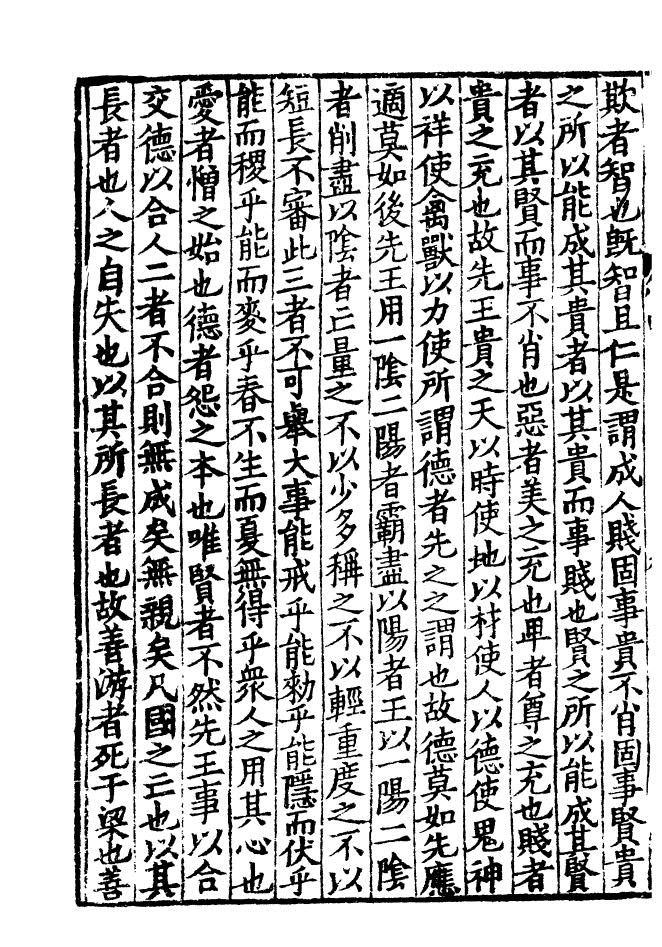 欺者智也旣智且仁是謂成人賤固事貴不肖固事賢貴
之所以能成其貴者以其貴而事賤也賢之所以能成其賢
者以其賢而事不肖也惡者美之充也卑者尊之充也賤者
貴之充也故先王貴之天以時使地以材使人以德使鬼神
以祥使禽獸以力使所謂德者先之之謂也故德莫如先應
適莫如後先王用一陰二陽者霸盡以陽者王以一陽二陰
者削盡以陰者亡量之不以少多稱之不以輕重度之不以
短長不審此三者不可舉大事能戒乎能勑乎能隱而伏乎
能而稷乎能而麥乎春不生而夏無得乎衆人之用其心也
愛者憎之始也德者怨之本也唯賢者不然先王事以合
交德以合人二者不合則無成矣無親矣凡國之亡也以其
長者也人之自失也以其所長者也故善游者死于梁也善